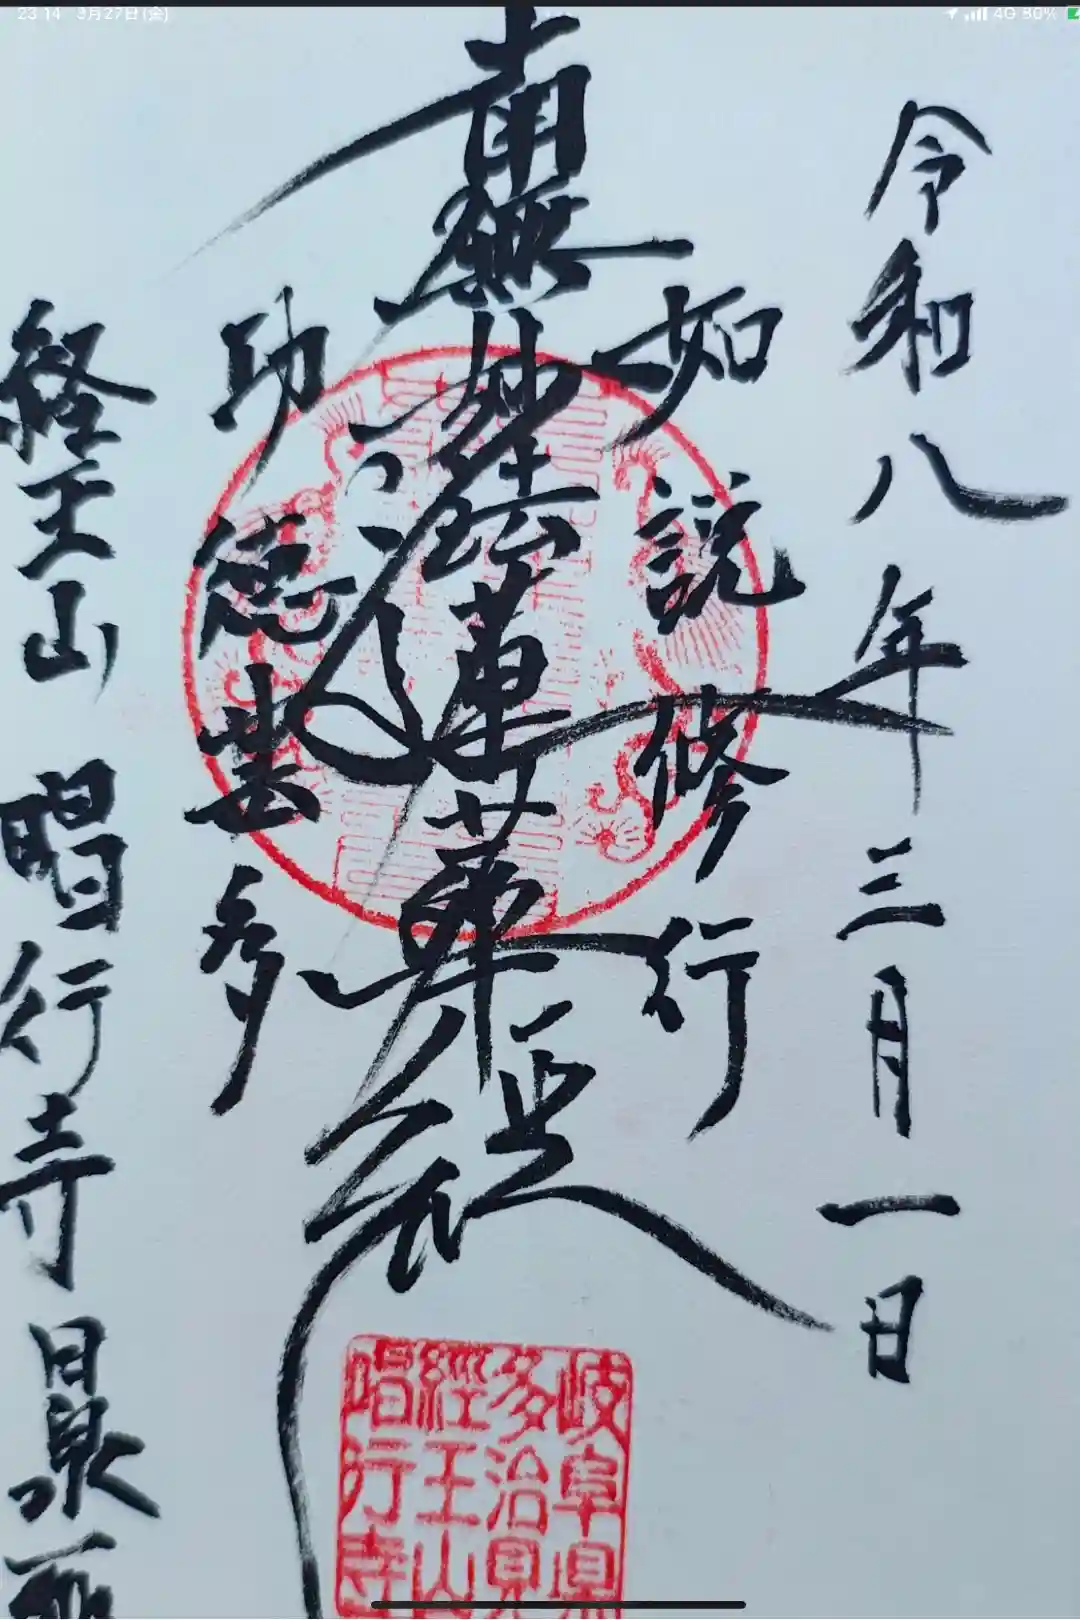 23:14 3月27日(金)
4G 80%
令和八年三月一日
如説修行
南無妙法蓮華経
功徳甚多
経王山 唱行寺 日泉
岐阜県
多治見
經王山
唱行寺